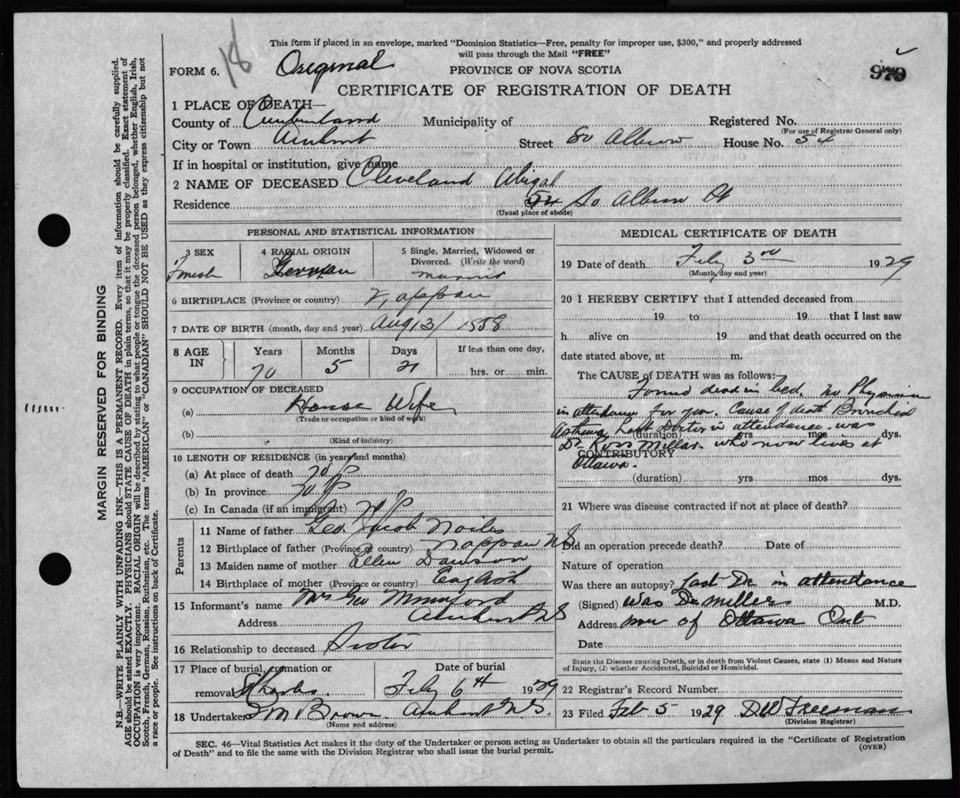 This form if placed in an envelope, marked "Dominion Statistics—Free, penalty for improper use, $300," and properly addressed
will pass through the Mail "FREE"
FORM 6.
18
Original
PROVINCE OF NOVA SCOTIA
979
CERTIFICATE OF REGISTRATION OF DEATH
1 PLACE OF DEATH—
County of Cumberland Municipality of Registered No.
(For use of Registrar General only)
City or Town Amherst Street So Albion House No. 54
If in hospital or institution, give name
2 NAME OF DECEASED Cleveland Abigal
Residence 54 So Albion St
(Usual place of abode)
PERSONAL AND STATISTICAL INFORMATION
3 SEX 4 RACIAL ORIGIN 5 Single, Married, Widowed or
Divorced. (Write the word)
German
6 BIRTHPLACE (Province or country) Nappan
7 DATE OF BIRTH (month, day and year) Aug 13/1858
8 AGE IN Years Months Days If less than one day,
70 5 21 hrs. or min.
9 OCCUPATION OF DECEASED
(a) House Wife
(Trade or occupation or kind of work)
(b)
(Kind of industry)
10 LENGTH OF RESIDENCE (in years and months)
(a) At place of death 70
(b) In province 70
(c) In Canada (if an immigrant) 70
Parents
11 Name of father Geo Jacob Noiles
12 Birthplace of father (Province or country) Nappan NS
13 Maiden name of mother Ellen Dawson
14 Birthplace of mother (Province or country) English
15 Informant's name Mrs Geo Mumford
Address Amherst NS
16 Relationship to deceased Sister
17 Place of burial, cremation or
removal Date of burial
Feby 6th 1929
18 Undertaker Brown Amherst NS
(Name and address)
MEDICAL CERTIFICATE OF DEATH
19 Date of death Feby 3rd 1929
(Month, day and year)
20 I HEREBY CERTIFY that I attended deceased from
19 to 19 that I last saw
h alive on 19 and that death occurred on the
date stated above, at m.
The CAUSE OF DEATH was as follows:
Found dead in bed. No Physician
in attendance for year. Cause of death Bronchial
Asthma, Last Doctor in attendance was
(duration) yrs. mos. dys.
Dr Ross Millar who now lives at
CONTRIBUTORY
Ottawa.
(duration) yrs mos dys.
21 Where was disease contracted if not at place of death?
Did an operation precede death? Date of
Nature of operation
Was there an autopsy? Last Dr in attendance
(Signed) was Dr Millers M.D.
Address now of Ottawa Ont
Date
State the Disease causing Death, or in death from Violent Causes, state (1) Means and Nature
of Injury, (2) whether Accidental, Suicidal or Homicidal.
22 Registrar's Record Number
23 Filed Feb 5 1929 DW Freeman
(Division Registrar)
SEC. 46—Vital Statistics Act makes it the duty of the Undertaker or person acting as Undertaker to obtain all the particulars required in the "Certificate of Registration
of Death" and to file the same with the Division Registrar who shall issue the burial permit.
(OVER)
MARGIN RESERVED FOR BINDING
N.B.—WRITE PLAINLY WITH UNFADING INK—THIS IS A PERMANENT RECORD. Every item of information should be carefully supplied.
AGE should be stated EXACTLY. PHYSICIANS should STATE CAUSE OF DEATH in plain terms, so that it may be properly classified. Exact statement of
OCCUPATION is very important. RACIAL ORIGIN will be described by stating to what people or tongue the deceased person belonged, whether English, Irish,
Scotch, French, German, Russian, Ruthenian, etc. The terms "AMERICAN" or "CANADIAN" SHOULD NOT BE USED as they express citizenship but not
a race or people. See instructions on back of Certificate.